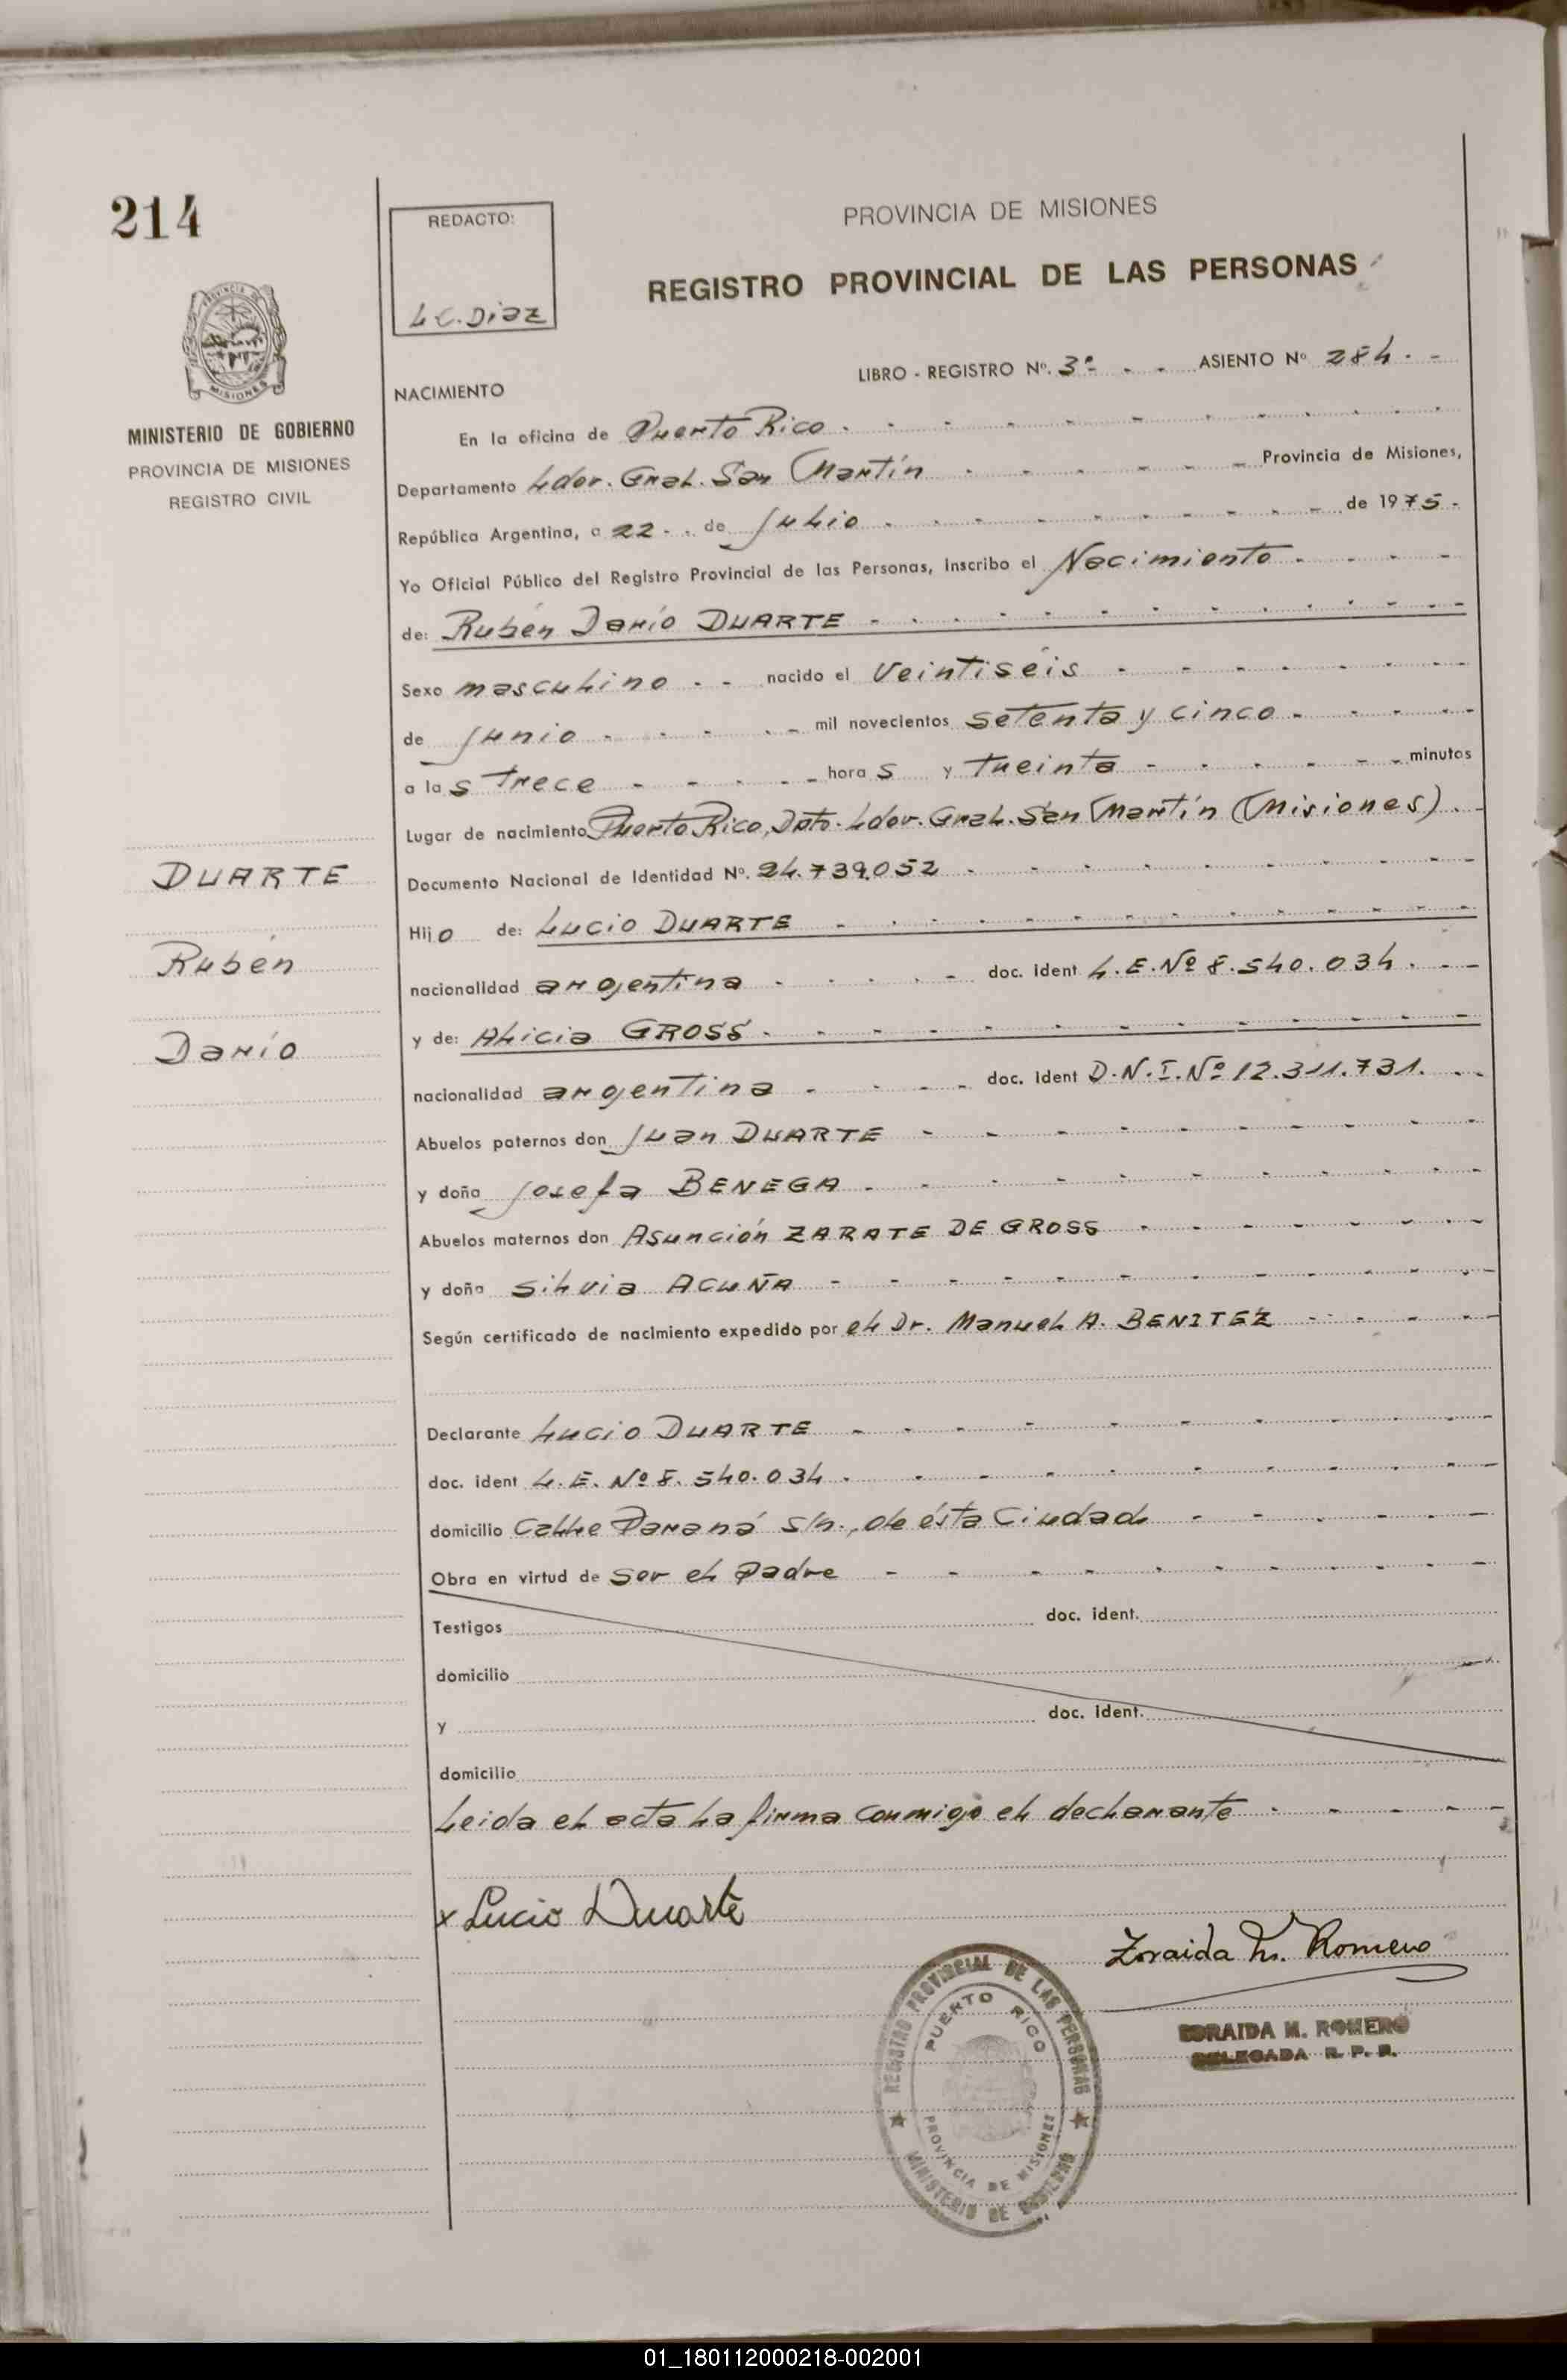 214
PROVINCIA DE
MISIONES
MINISTERIO DE GOBIERNO
PROVINCIA DE MISIONES
REGISTRO CIVIL
DUARTE
Rubén
Darío
REDACTO:
L.C.Diaz
PROVINCIA DE MISIONES
REGISTRO PROVINCIAL DE LAS PERSONAS
LIBRO - REGISTRO Nº. 3º - - ASIENTO Nº 284. -
NACIMIENTO
En la oficina de Puerto Rico
Departamento Ldor. Gral. San Martín Provincia de Misiones,
República Argentina, a 22 - . de Julio de 1975 -
Yo Oficial Público del Registro Provincial de las Personas, inscribo el Nacimiento
de: Rubén Darío DUARTE
Sexo masculino - - nacido el veintiséis
de Junio mil novecientos setenta y cinco
a las trece horas y treinta minutos
Lugar de nacimiento Puerto Rico, Dpto. Ldor. Gral. San Martín (Misiones).
Documento Nacional de Identidad Nº. 24.739.052
Hijo de: Lucio DUARTE
nacionalidad argentina doc. ident L.E.Nº 8.540.034.
y de: Alicia GROSS
nacionalidad argentina doc. ident D.N.I.Nº 12.311.731.
Abuelos paternos don Juan DUARTE
y doña Josefa BENEGA
Abuelos maternos don Asunción ZARATE DE GROSS
y doña Silvia ACUÑA
Según certificado de nacimiento expedido por el Dr. Manuel A. BENITEZ
Declarante Lucio DUARTE
doc. ident L.E. Nº 8.540.034.
domicilio Calle Paraná s/n., de ésta Ciudad
Obra en virtud de ser el padre
Testigos doc. ident.
domicilio
y doc. ident.
domicilio
Leida el acta la firma conmigo el declarante
x Lucio Duarte
Zoraida M. Romero
ZORAIDA M. ROMERO
DELEGADA R. P. P.
REGISTRO PROVINCIAL DE LAS PERSONAS
PUERTO RICO
PROVINCIA DE MISIONES
MINISTERIO DE GOBIERNO
01_180112000218-002001